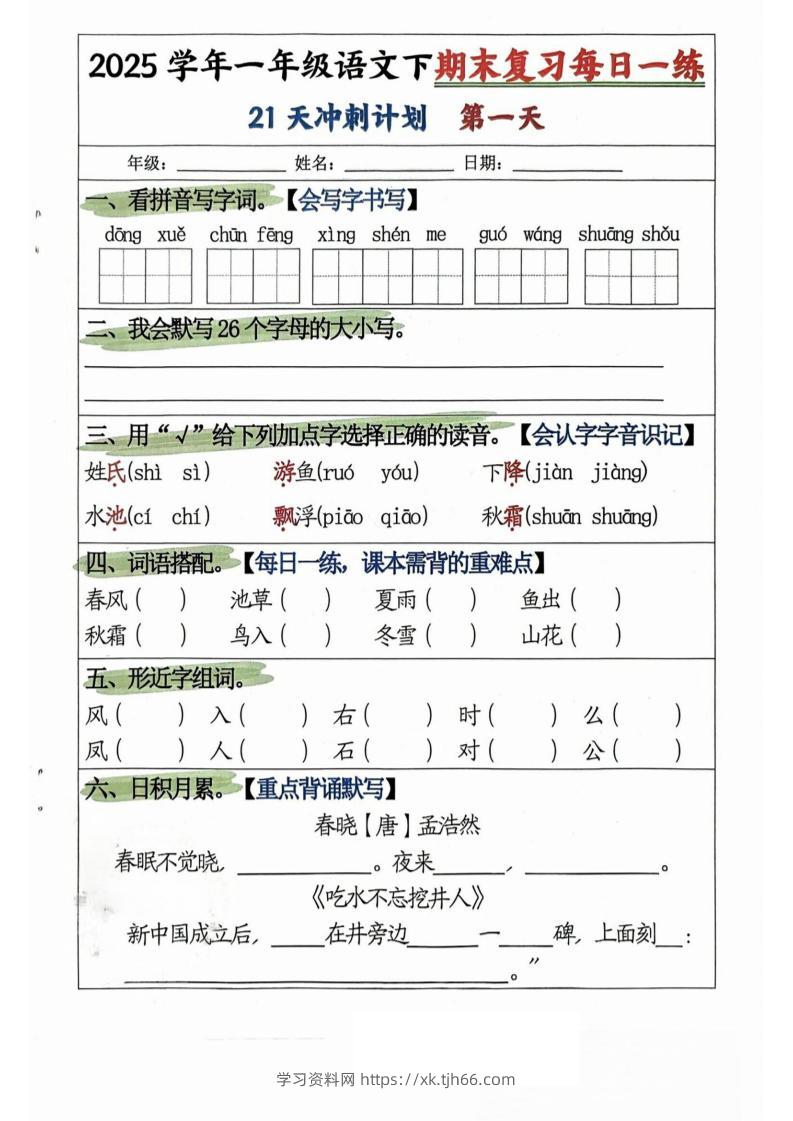 2025 学年一年级语文下期末复习每日一练
21 天冲刺计划 第一天
年级：__________ 姓名：__________ 日期：__________
一、看拼音写字词。【会写字书写】
dōng xuě chūn fēng xìng shén me guó wáng shuāng shǒu
二、我会默写 26 个字母的大小写。
三、用“√”给下列加点字选择正确的读音。【会认字字音识记】
姓氏(shì sì) 游鱼(ruó yóu) 下降(jiàn jiàng)
水池(cí chí) 飘浮(piāo qiāo) 秋霜(shuān shuāng)
四、词语搭配。【每日一练，课本需背的重难点】
春风（ ） 池草（ ） 夏雨（ ） 鱼出（ ）
秋霜（ ） 鸟入（ ） 冬雪（ ） 山花（ ）
五、形近字组词。
风（ ） 入（ ） 右（ ） 时（ ） 么（ ）
凤（ ） 人（ ） 石（ ） 对（ ） 公（ ）
六、日积月累。【重点背诵默写】
春晓【唐】孟浩然
春眠不觉晓，__________。夜来_____，__________。
《吃水不忘挖井人》
新中国成立后，____在井旁边_____一____碑，上面刻__：
______________________________。”
学习资料网 https://xk.tjh66.com